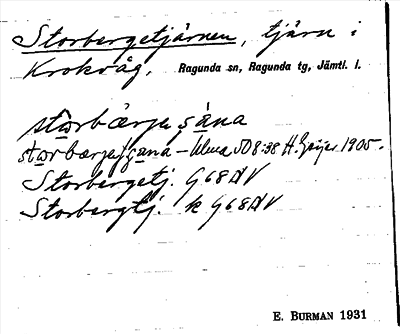 Storbergetjärnen, tjärn i
Krokvåg, Ragunda sn, Ragunda tg, Jämtl. l.
storbærje sána
storbærje sána – Ulma 508:38 H. Geijer 1905.
Storbergetj. G 68 NV
Storbergtj. k G 68 NV
E. BURMAN 1931